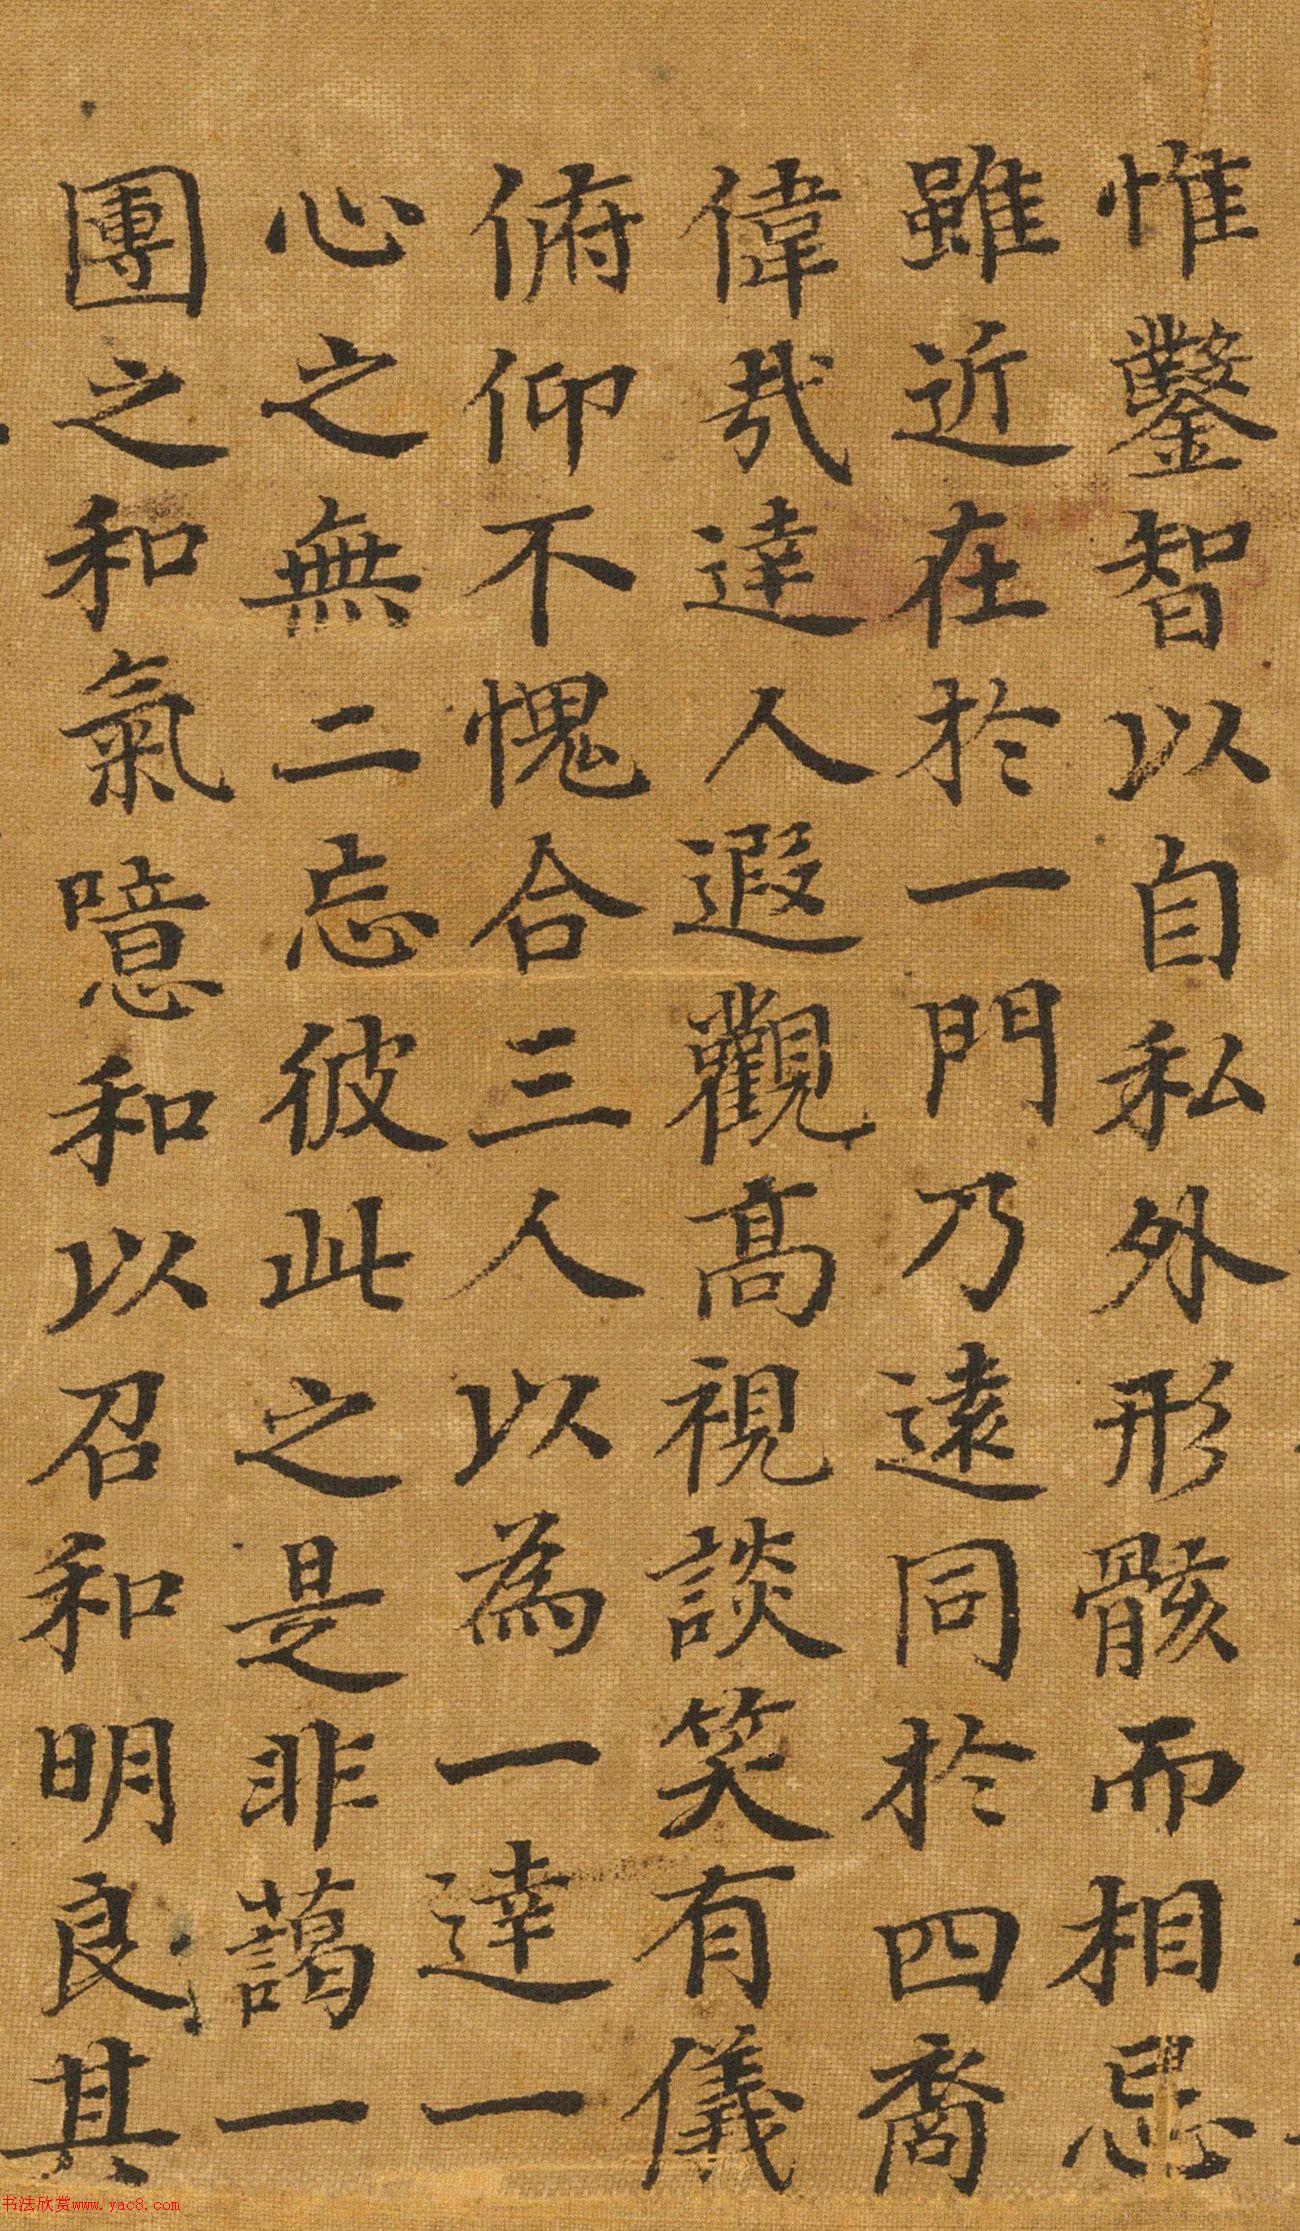 惟鑿智以自私外形骸而相忌
雖近在於一門乃遠同於四裔
偉哉達人遐觀高視談笑有儀
俯仰不愧合三人以為一達一
心之無二忘彼此之是非藹一
團之和氣噫和以召和明良其
书法欣赏www.yac8.com